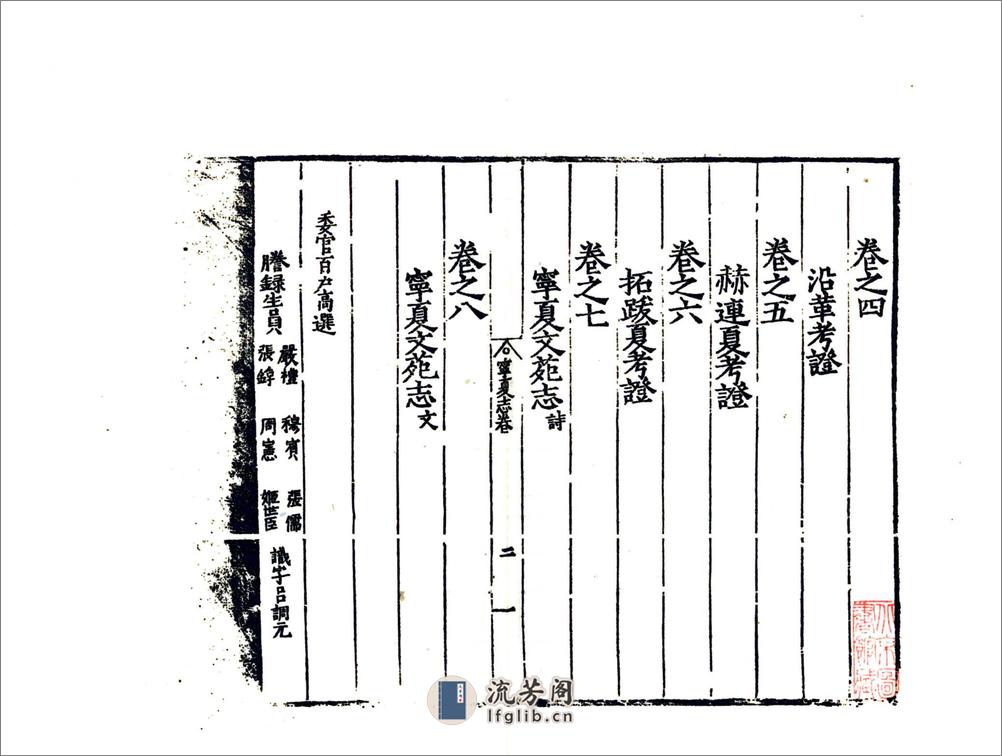 卷之四
沿革考證
卷之五
赫連夏考證
卷之六
拓跋夏考證
卷之七
寧夏文苑志詩
寧夏志卷
二
一
卷之八
寧夏文苑志文
委官百户高選
謄録生員
嚴禮 穆賓 張儒
張錞 周憲 姬世臣
識字吕調元
流芳阁
lfglib.cn